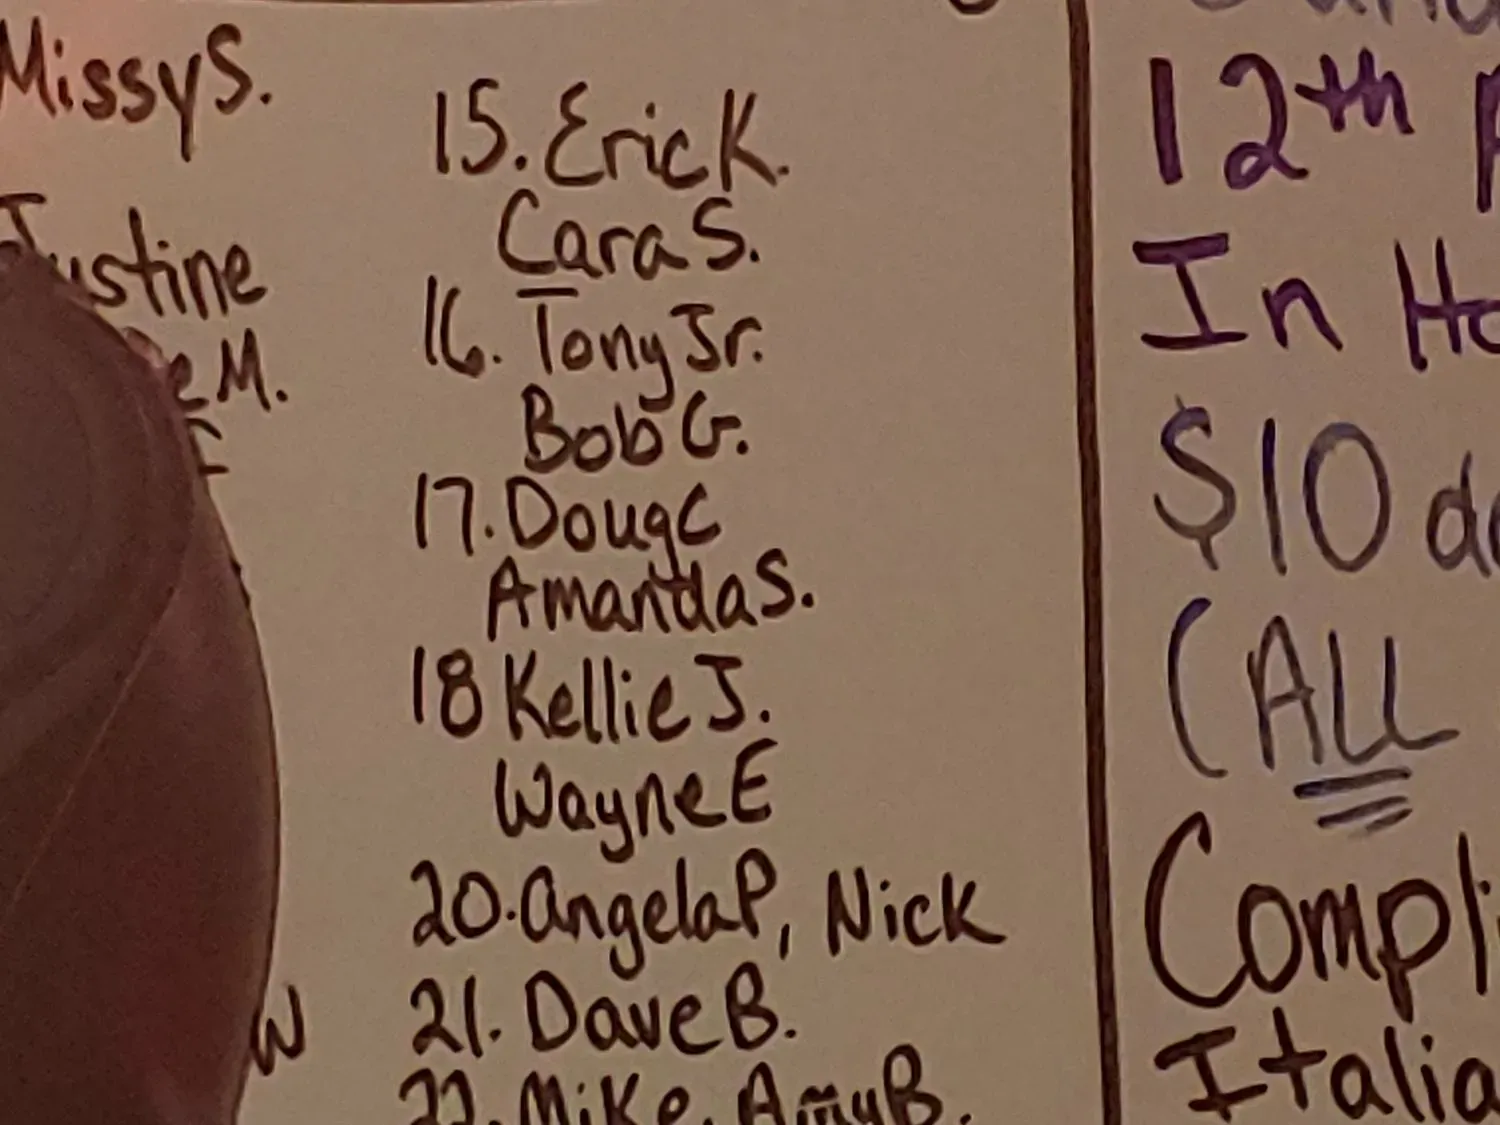 MissyS.
Justine
eM.
W
15. Eric K.
Cara S.
16. Tony Jr.
Bob G.
17. Doug C
Amanda S.
18 Kellie J.
Wayne E
20. Angela P, Nick
21. Dave B.
22. Mike, Amy B.
12th
In Ho
$10 do
(ALL
Compli
Italia